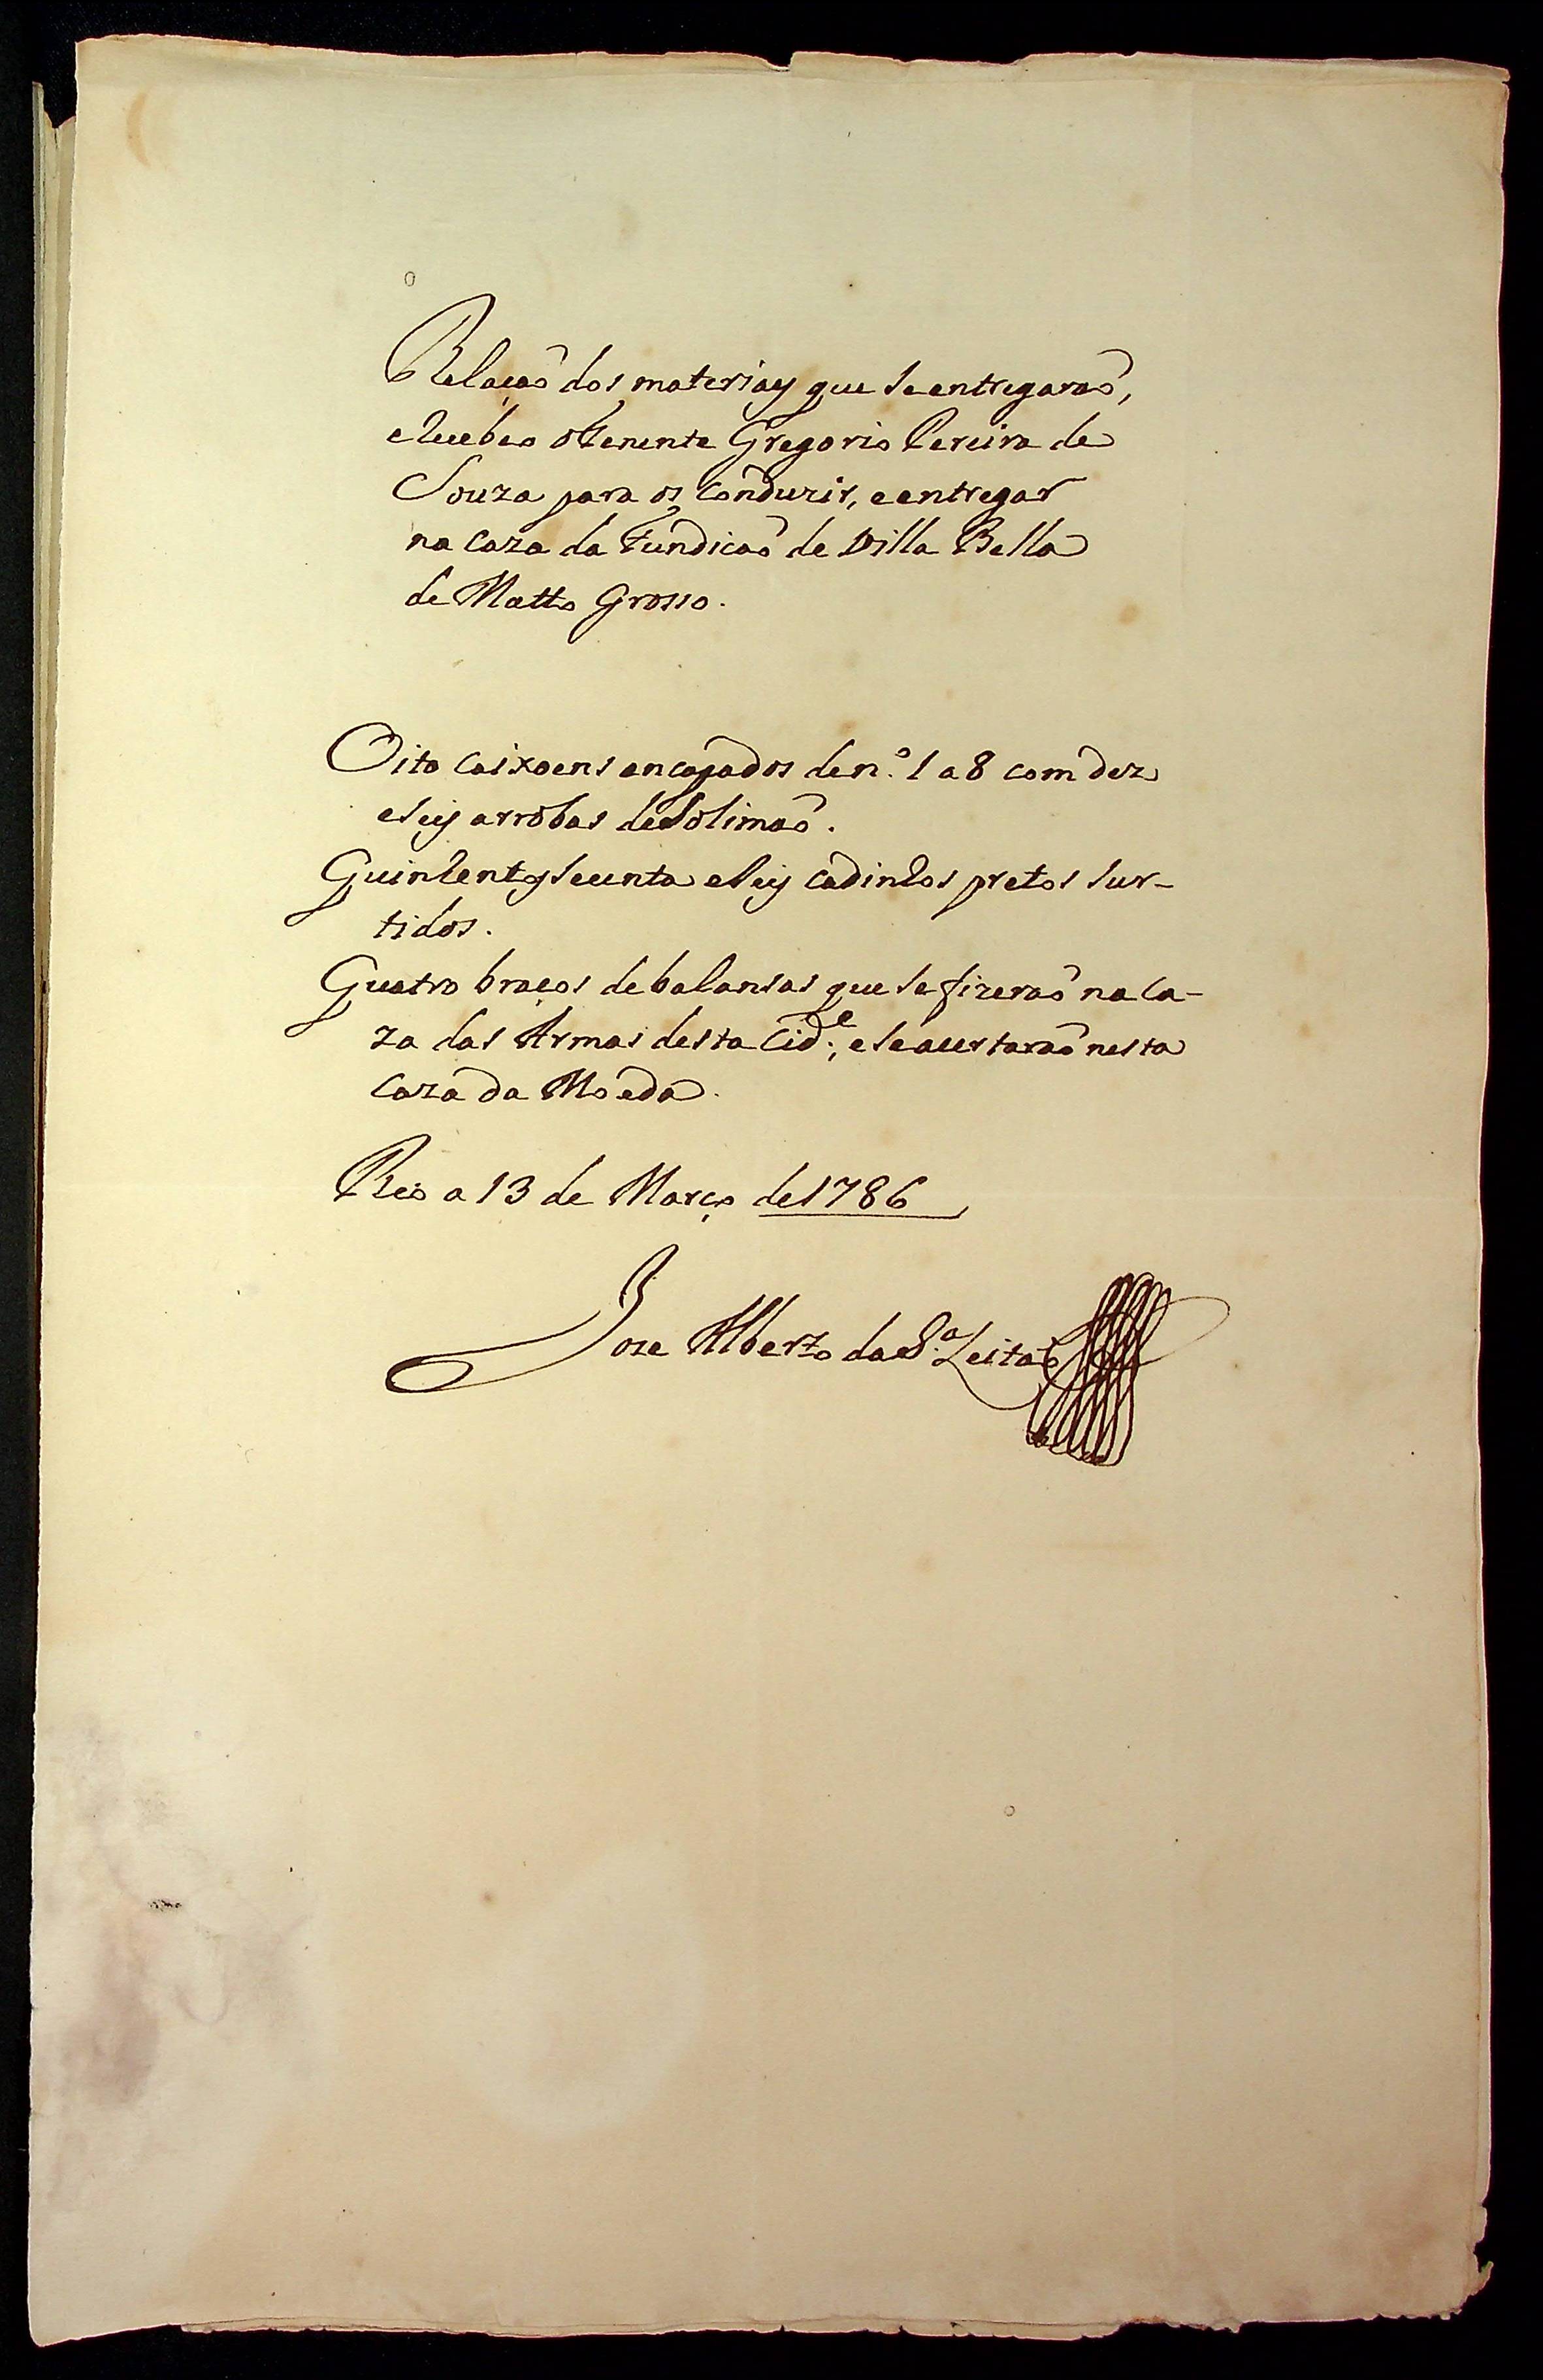 Relaçaõ dos materiaes que se entregaraõ,
e recebeo o Tenente Gregorio Pereira de
Souza para os conduzir, e entregar
na Caza da Fundicaõ de Villa Bella
de Matto Grosso.
Oito caixoens encapados de n.º 1 a 8 com dez
e seis arrobas de Solimaõ.
Quinhentos secenta e seis cadinhos pretos sur-
tidos.
Quatro braços de balansas que se fizeraõ na Ca-
za das Armas desta Cid.e, e se acertaraõ nesta
Caza da Moeda.
Rio a 13 de Março de 1786
Joze Alberto da S.a Leitaõ